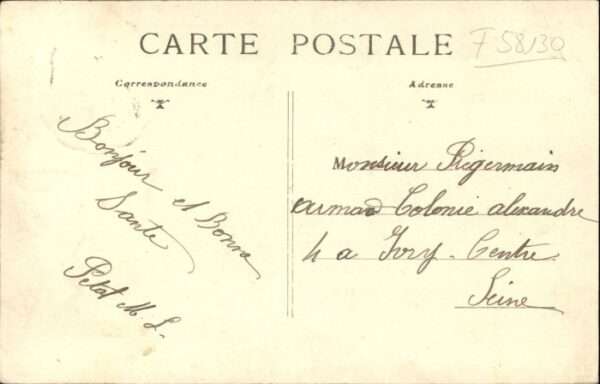 CARTE POSTALE
F 58130
Correspondance
Adresse
Bonjour et Bonne
Sante
Petot M. L.
Monsieur Régermain
Armand Colonie alexandre
4 a Ivry-Centre
Seine